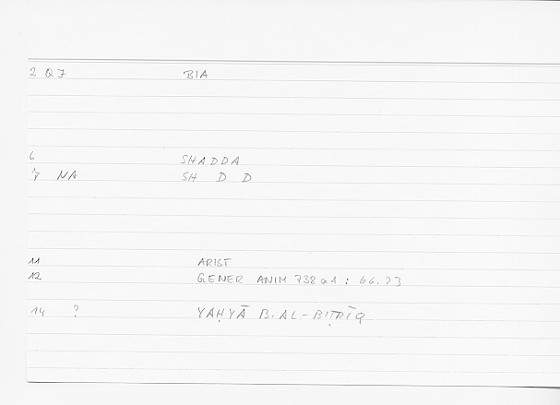 2 Q7 BIA
6 SHADDA
7 NA SH D D
11 ARIST
12 GENER ANIM 738a1 : 66.23
14 ? YAḤYĀ B. AL-BIṬRĪQ